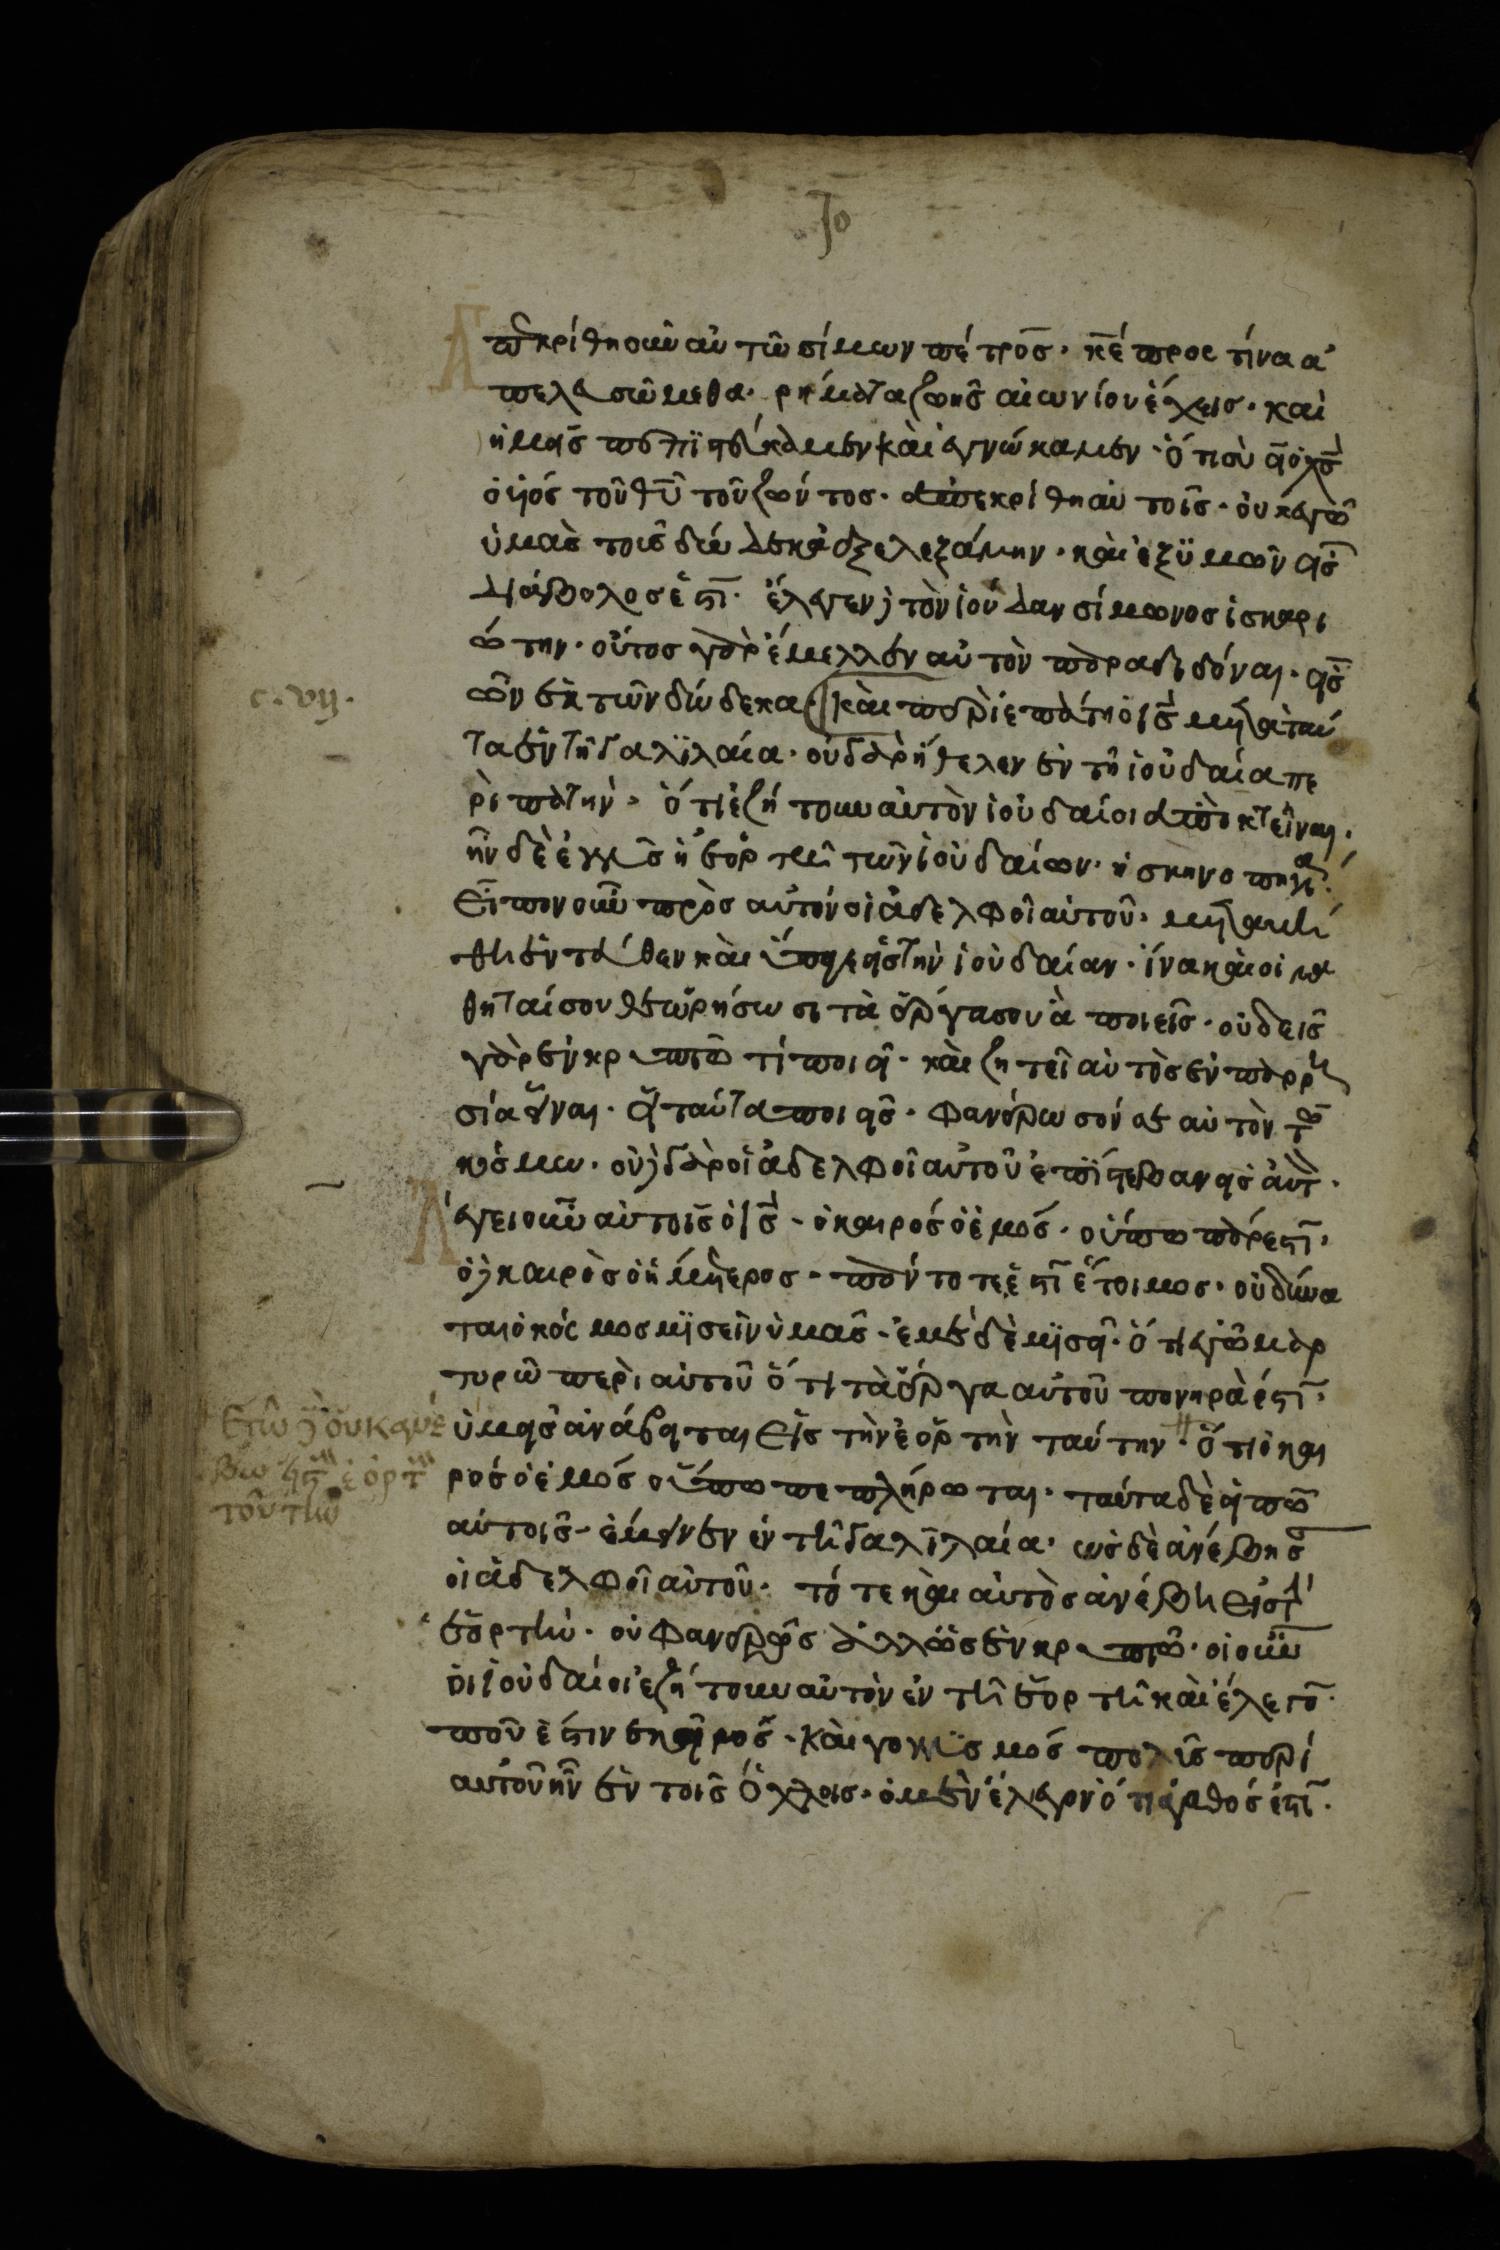 Jo
Ἀπεκρίθη οὖν αὐτῶ σίμων πέτρος· κ̅ε̅ προς τίνα ἀ
πελευσώμεθα· ρήματα ζωῆς αἰωνίου ἔχεις· καὶ
ἡμεῖς πεπϊστεύκαμεν καὶ ἐγνώκαμεν· ὅτι σὺ εἶ ὁ χ̅ς̅
ὁ ϋἱός τοῦ θ̅υ̅ τοῦ ζώντος· ἀπεκρίθη αὐτοῖς· οὐκ ἐγὼ
ὑμᾶς τοὺς δώδεκα ἐξελεξάμην· καὶ ἐξ ϋμῶν εἷς
διάβολος ἐστι̅· ἔλεγεν δὲ τὸν ἰούδαν σίμωνος ἰσκαρι
ώτην· οὗτος γὰρ ἔμελλεν αὐτὸν παραδιδόναι· εἷς
ὢν ἐκ τῶν δώδεκα· καὶ περιεπάτει ὁ ι̅ς̅ μετὰ ταύ
c. vij.
τα ἐν τῆ γαλϊλαία· οὐ γὰρ ἤθελεν ἐν τῆ ἰουδαία πε
ριπατεῖν· ὅτι ἐζήτουν αὐτὸν ἰουδαίοι ἀποκτεῖναι·
ἦν δὲ ἐγγὺς ἡ ἑορτὴ τῶν ἰουδαίων· ἡ σκηνοπηγία·
Εἶπον οὖν πρὸς αὐτόν οἱ ἀδελφοὶ αὐτοῦ· μετάβη
θι ἐντεύθεν καὶ ὕπαγε εἰς τὴν ἰουδαίαν· ἵνα καὶ οἱ μα
θηταί σου θεωρήσωσι τὰ ἔργα σου ἃ ποιεῖς· οὐδεὶς
γὰρ ἐν κρυπτῶ τί ποιεῖ· καὶ ζητεῖ αὐτὸς ἐν παρρη
σία εἶναι· εἰ ταῦτα ποιεῖς· φανέρωσόν σε αὐτὸν τῶ
κόσμω· οὐδὲ γὰρ οἱ ἀδελφοὶ αὐτοῦ ἐπίστευσαν εἰς αὐτ·
Λέγει οὖν αὐτοῖς ὁ ι̅ς̅· ὁ καιρός ὁ ἐμός· οὔπω πάρεστι̅·
ὁ δὲ καιρὸς ὁ ἡμέτερος· πάντοτε ἐστι̅ ἕτοιμος· οὐ δύνα
ται ὁ κόσμος μϊσεῖν ὑμᾶς· ἐμὲ δὲ μϊσεῖ· ὅτι ἐγὼ μαρ
τυρῶ περὶ αὐτοῦ ὅτι τὰ ἔργα αὐτοῦ πονηρὰ ἐστι̅·
ὑμεῖς ἀνάβηται Εἰς τὴν ἑορτὴν ταύτην· ὅτι ὁ και
Ἐγὼ δὲ οὐκ ἀνα
βαίνω εἰς τ̅ ἑορτ̅
ταύτην
ρός ὁ ἐμός οὔπω πεπλήρωται· ταύτα δὲ εἰπὼν
αὐτοῖς· ἔμεινεν ἐν τῆ γαλϊλαία· ὡς δὲ ἀνέβησ
οἱ ἀδελφοὶ αὐτοῦ· τότε καὶ αὐτὸς ἀνέβη Εἰς τὴν
ἑορτὴν· οὐ φανερῶς ἀλλ ὡς ἐν κρυπτῶ· οἱ οὖν
οἱ ἰουδαίοι ἐζήτουν αὐτὸν ἐν τῆ ἑορτῆ καὶ ἔλεγο̅·
ποῦ ἐστιν ἐκεῖνος· Καὶ γογγϋσμός πολὺς περί
αὐτοῦ ἦν ἐν τοῖς ὄχλοις· οἱ μὲν ἔλεγον ὅτι ἀγαθός ἐστι̅·